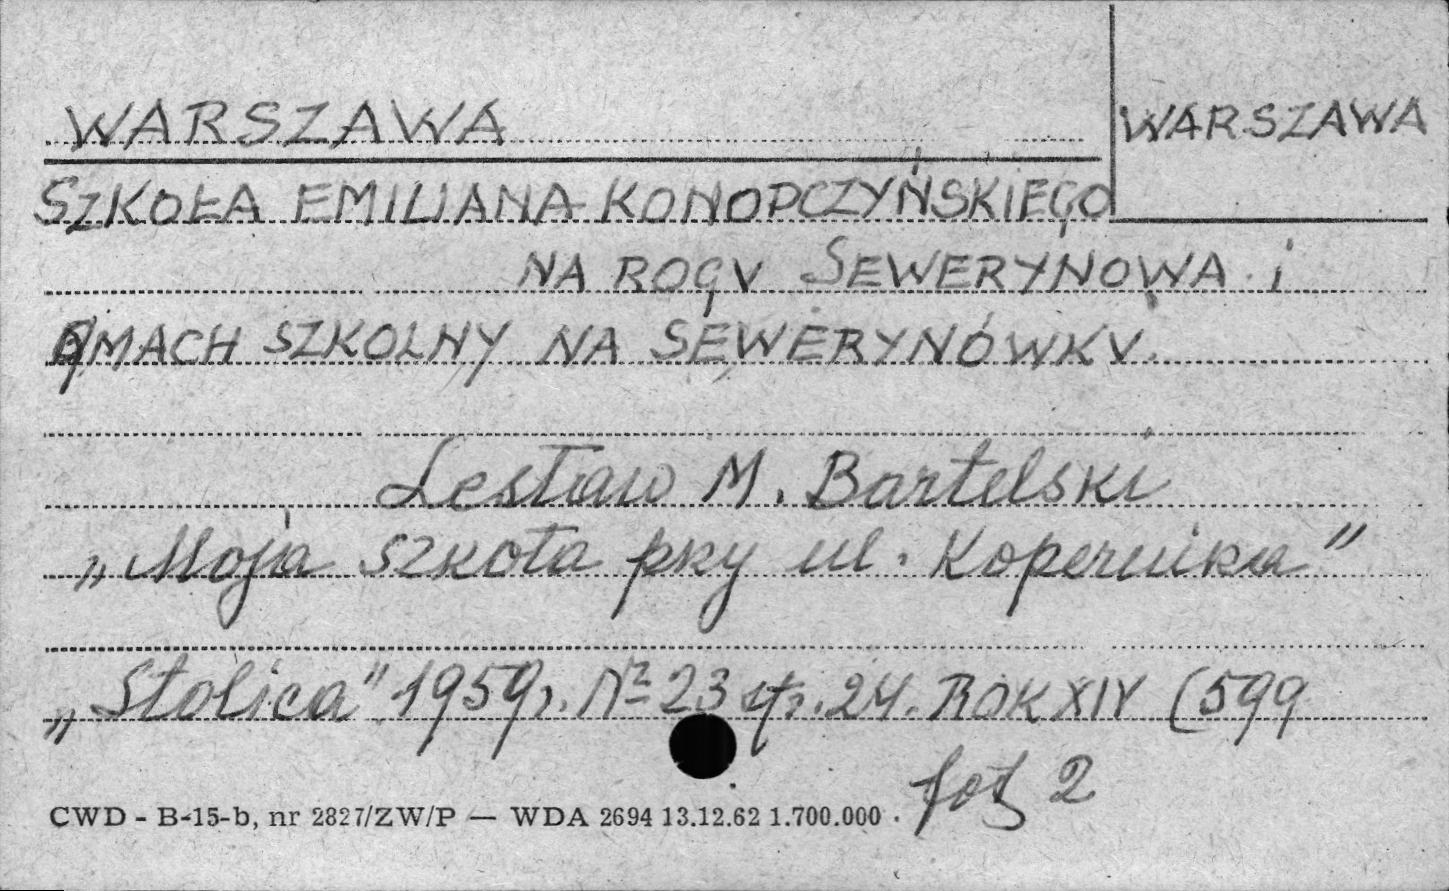 WARSZAWA
WARSZAWA
SZKOŁA EMILIANA KONOPCZYŃSKIEGO
NA ROGU SEWERYNOWA i
GMACH SZKOLNY NA SEWERYNÓWKU.
Lesław M. Bartelski
„Moja szkoła pky ul. Kopernika”
„Stolica” 1959r. Nr 23 str. 24. ROK XIV (599
fot 2
CWD - B-15-b, nr 2827/ZW/P — WDA 2694 13.12.62 1.700.000.